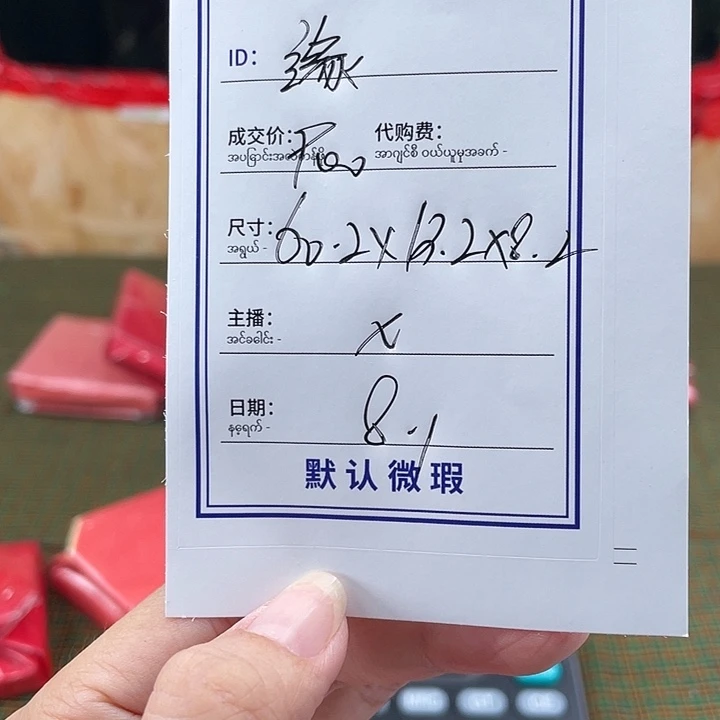 ID：缘
成交价： 代购费：
အပြောင်းအလဲတန်ဖိုး အာဂျင်စီ ဝယ်ယူမှုအခက် -
尺寸： 60.2X13.2X8.2
အရွယ် -
主播： X
အင်ခေါင်း -
日期： 8.1
နေ့ရက် -
默认微瑕